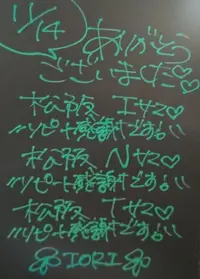 11/14
ありがとう
ございました♡
松阪 Iサマ♡
リピート感謝です!!
松阪 Nサマ♡
リピート感謝です!!
松阪 Tサマ♡
リピート感謝です!!
IORI